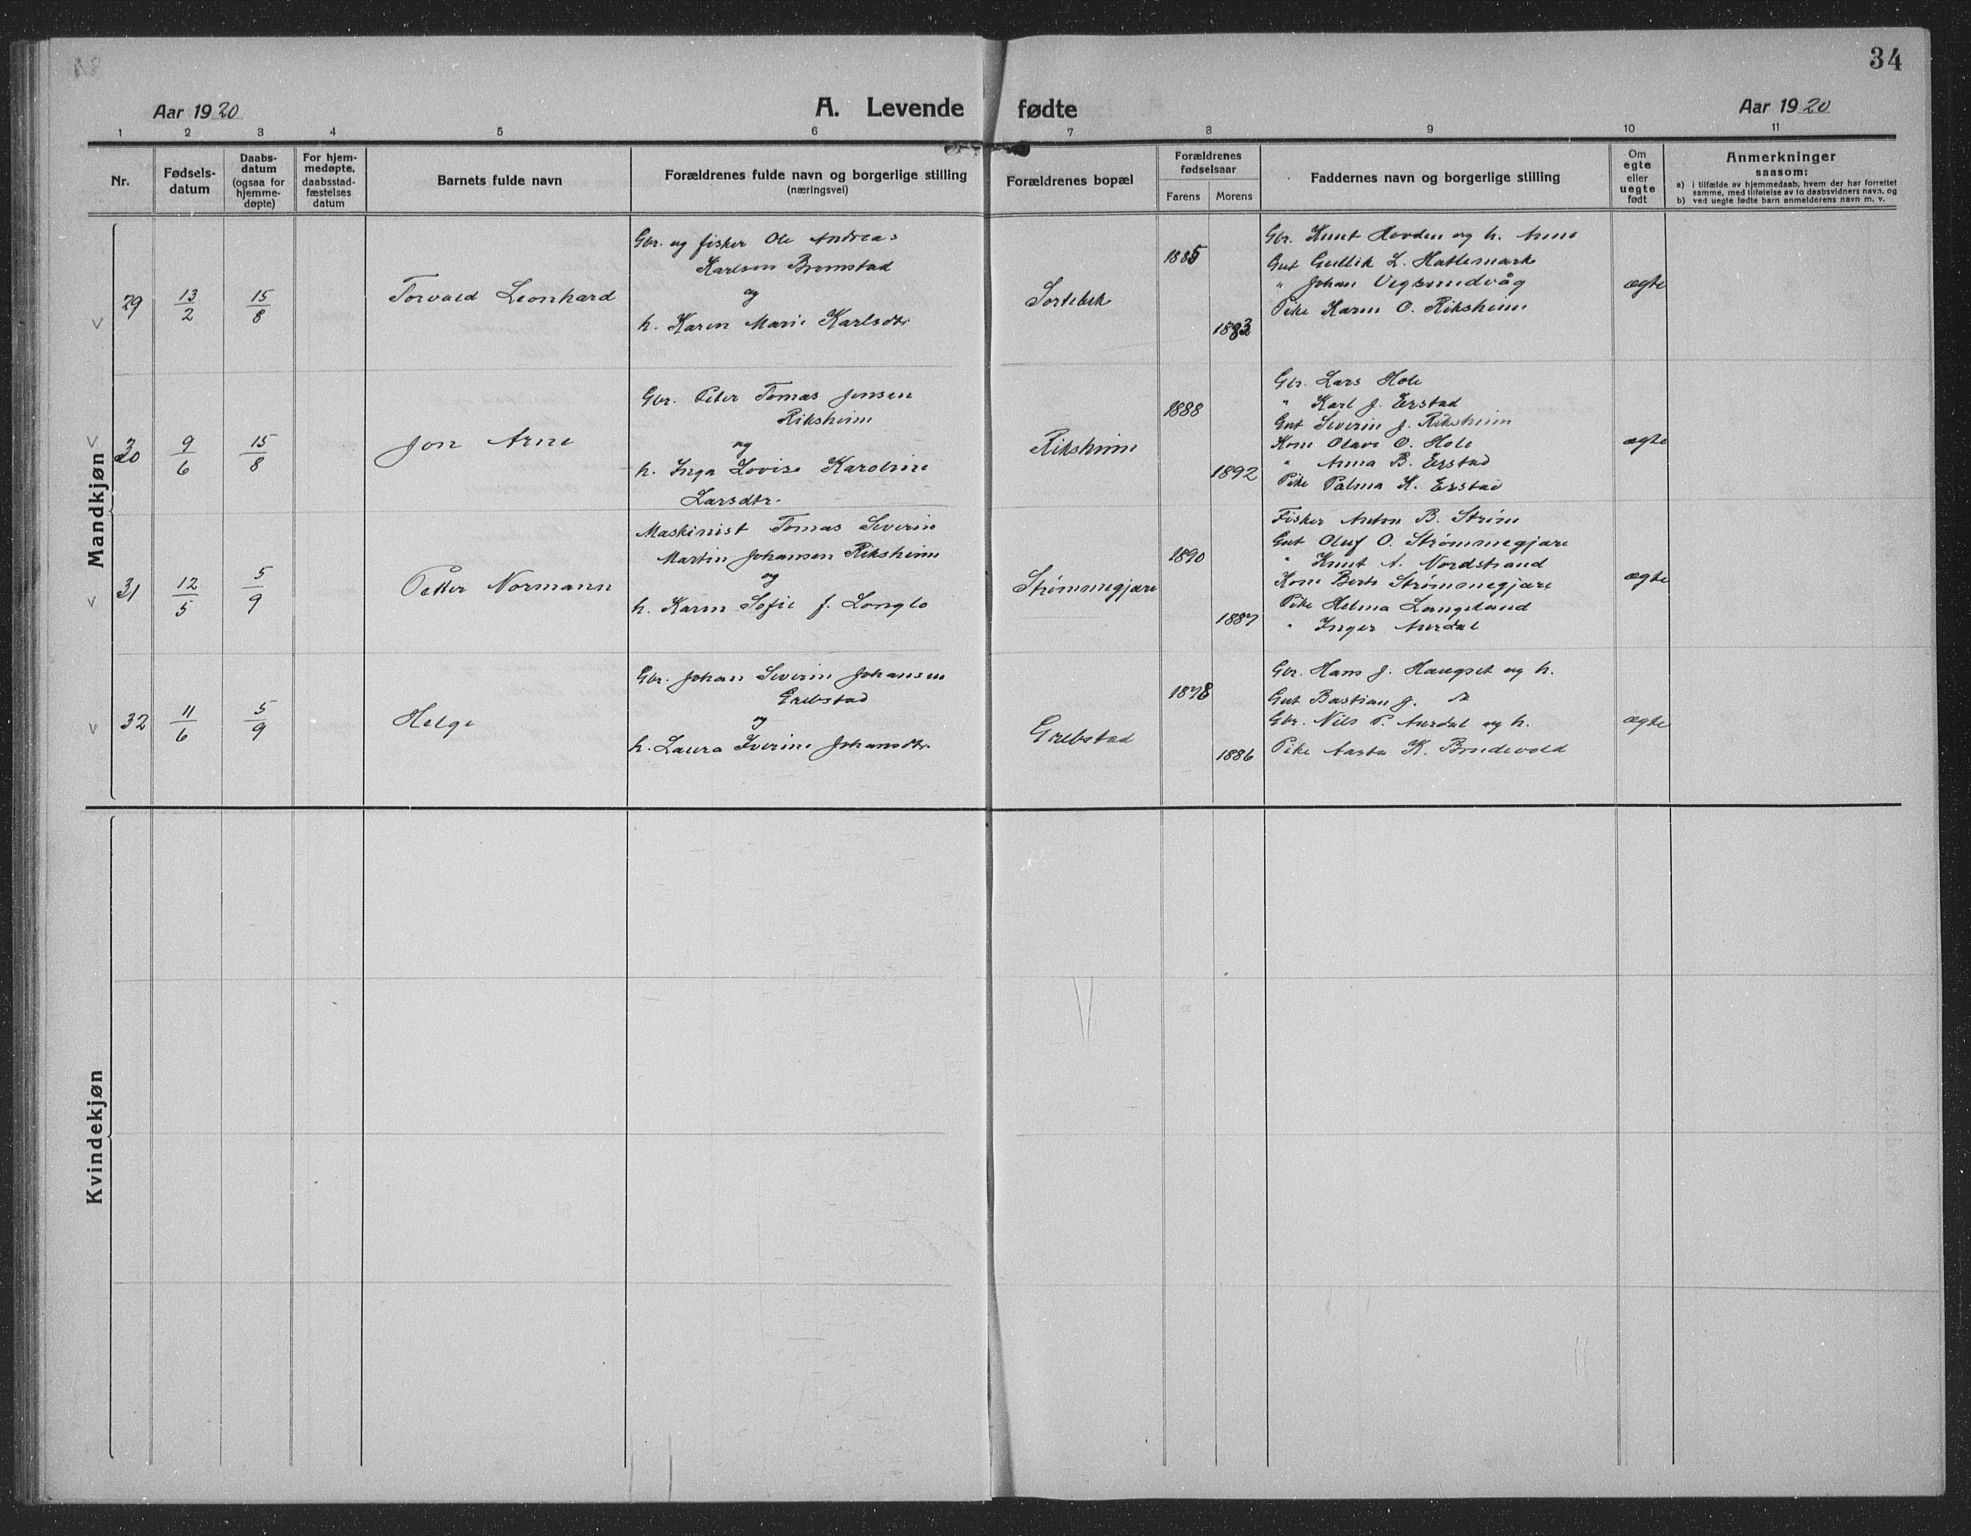 34
Aar 1920
A. Levende fødte
Aar 1920
1 2 3 4 5 6 7 8 9 10 11
Nr.
Fødsels-
datum
Daabs-
datum
(ogsaa for
hjemme-
døpte)
For hjem-
medøpte,
daabsstad-
fæstelses
datum
Barnets fulde navn
Forældrenes fulde navn og borgerlige stilling
(næringsvei)
Forældrenes bopæl
Forældrenes
fødselsaar
Farens Morens
Faddernes navn og borgerlige stilling
Om
egte
eller
uegte
født
Anmerkninger
saasom:
a) i tilfælde av hjemmedaab, hvem der har forrettet
samme, med tilføielse av to daabsvidners navn, og
b) ved uegte fødte barn anmelderens navn m. v.
Mandkjøn
29
13/2
15/8
Torvald Leonhard
Gbr. og fisker Ole Andreas
Karlsen Bromstad
og
h. Karen Marie Karlsdtr.
Sortebek
1885
1883
Gbr. Knut Hovden og h. Anne
Gut Gullik L. Hatlemark
" Johan Vegsundvåg
Pike Karen O. Riksheim
ægte
30
9/6
15/8
Jon Arne
Gbr. Peter Tomas Jensen
Riksheim
og
h. Inga Lovise Karoline
Larsdtr.
Riksheim
1888
1892
Gbr. Lars Hole
" Karl J. Erstad
Gut Severin J. Riksheim
Kone Olave O. Hole
" Anna B. Erstad
Pike Palma K. Erstad
ægte
31
12/5
5/9
Petter Normann
Maskinist Tomas Severin
Martin Johansen Riksheim
og
h. Karen Sofie f. Longlo
Strømmegjære
1890
1887
Fisker Anton B. Strøm
Gut Oluf O. Strømmegjære
" Knut A. Nordstrand
Kone Berte Strømmegjære
Pike Helma Langeland
" Inger Aurdal
ægte
32
11/6
5/9
Helge
Gbr. Johan Severin Johansen
Grebstad
og
h. Laura Iverine Johansdtr.
Grebstad
1878
1886
Gbr. Hans J. Haugset og h.
Gut Bastian J.
Gbr. Nils P. Aurdal og h.
Pike Aasta K. Brudevold
ægte
Kvindekjøn